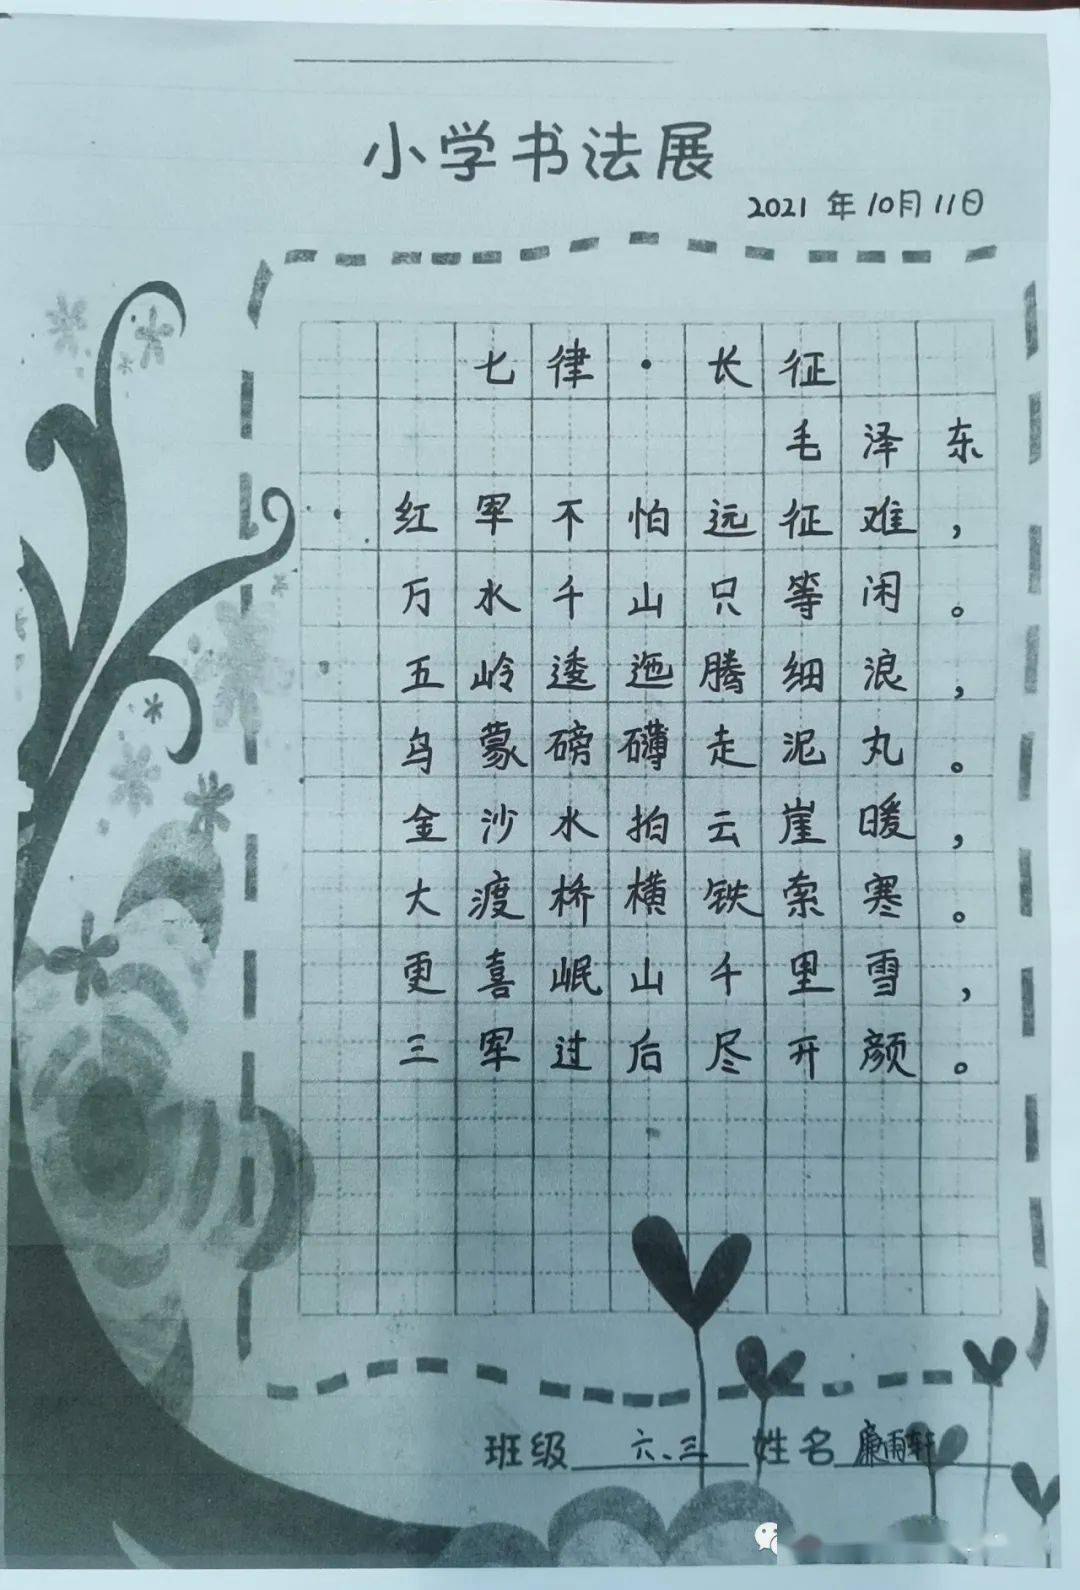 小学书法展
2021年10月11日
七律·长征
毛泽东
红军不怕远征难，
万水千山只等闲。
五岭逶迤腾细浪，
乌蒙磅礴走泥丸。
金沙水拍云崖暖，
大渡桥横铁索寒。
更喜岷山千里雪，
三军过后尽开颜。
班级 六、三 姓名 廉雨轩